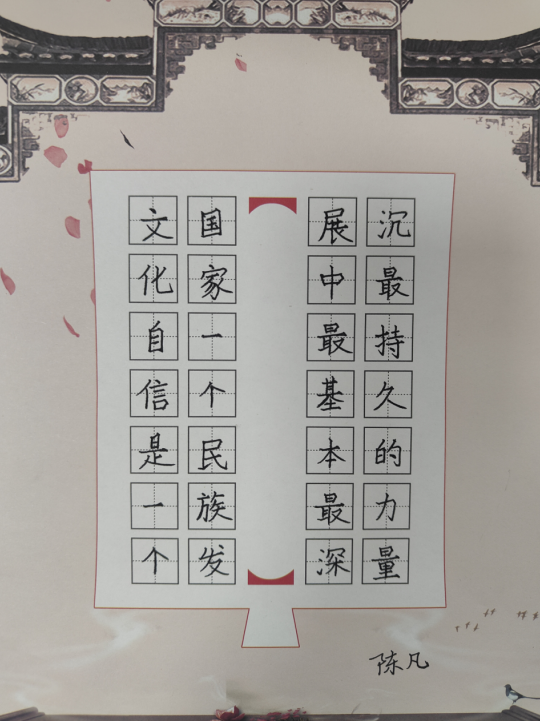 文化自信是一个
国家一个民族发
展中最基本最深
沉最持久的力量
陈凡